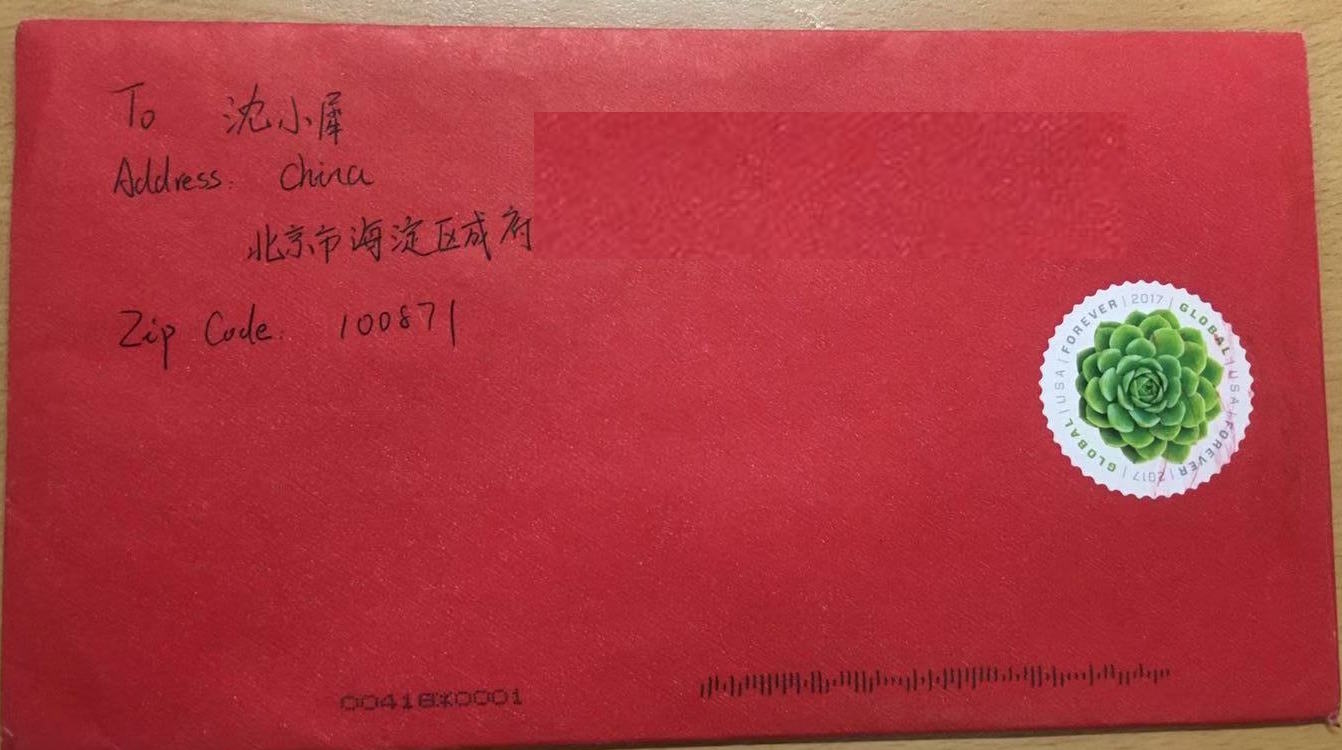 To 沈小犀
Address: China
北京市海淀区成府
Zip Code: 100871
GLOBAL | USA | FOREVER | 2017 | GLOBAL | USA | FOREVER | 2017 |
00418*0001